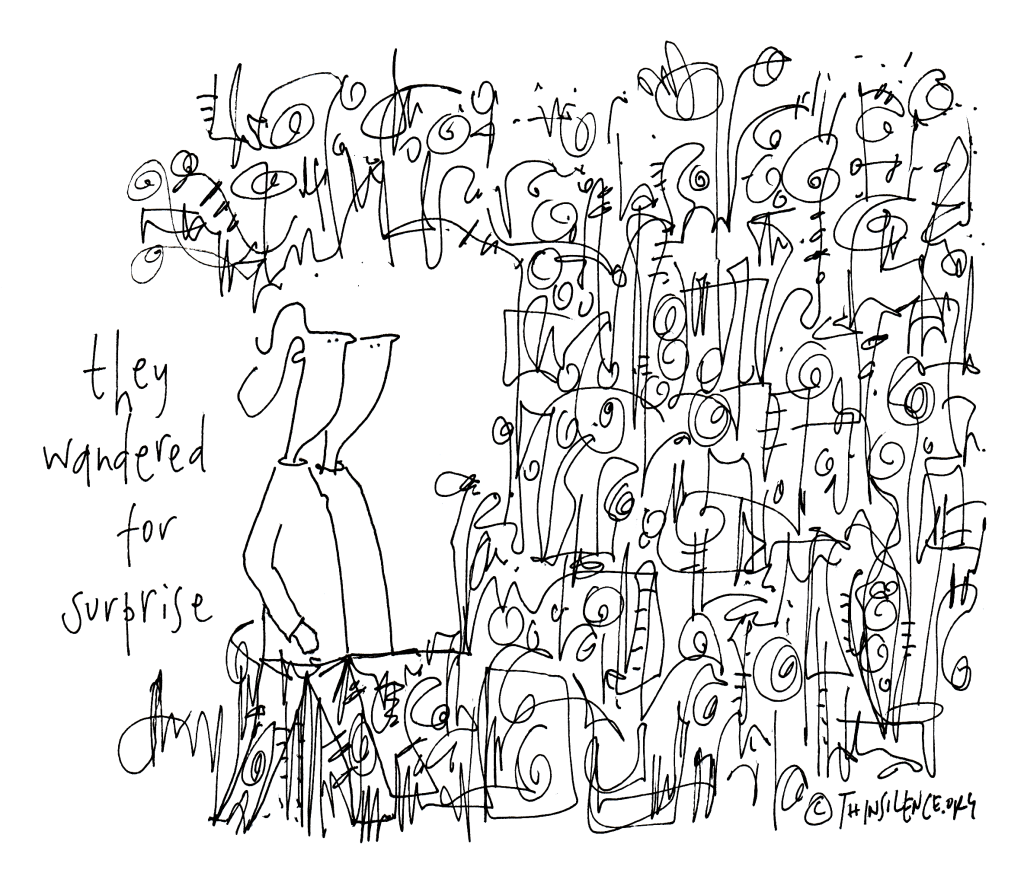 they
wandered
for
surprise
© THINSILENCE.ORG